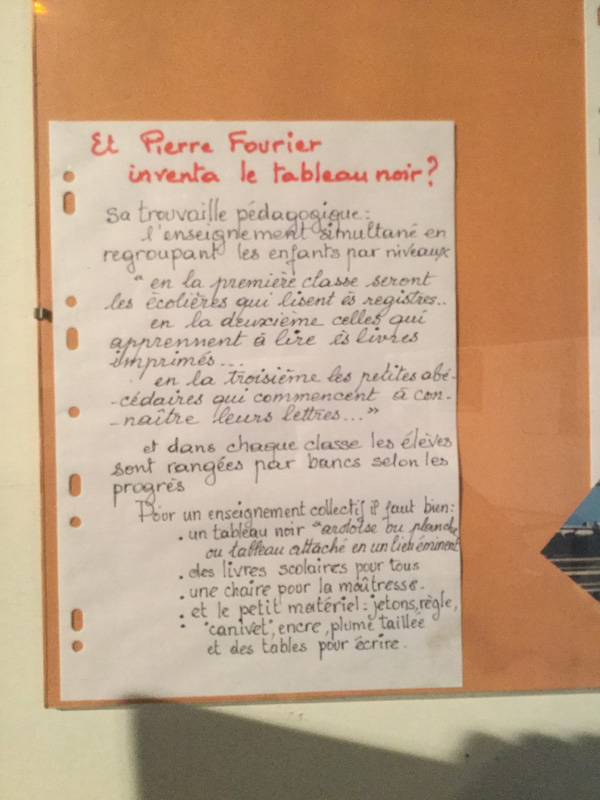 Et Pierre Fourier
inventa le tableau noir ?
Sa trouvaille pédagogique :
l'enseignement simultané en
regroupant les enfants par niveaux
" en la première classe seront
les écolières qui lisent ès registres..
en la deuxième celles qui
apprennent à lire ès livres
imprimés...
en la troisième les petites abé-
-cédaires qui commencent à con-
-naître leurs lettres... "
et dans chaque classe les élèves
sont rangées par bancs selon les
progrès
Pour un enseignement collectif il faut bien :
. un tableau noir " ardoise ou planche
ou tableau attaché en un lieu éminent
. des livres scolaires pour tous
. une chaire pour la maîtresse.
. et le petit matériel : jetons, règle,
"canivet", encre, plume taillée
et des tables pour écrire.